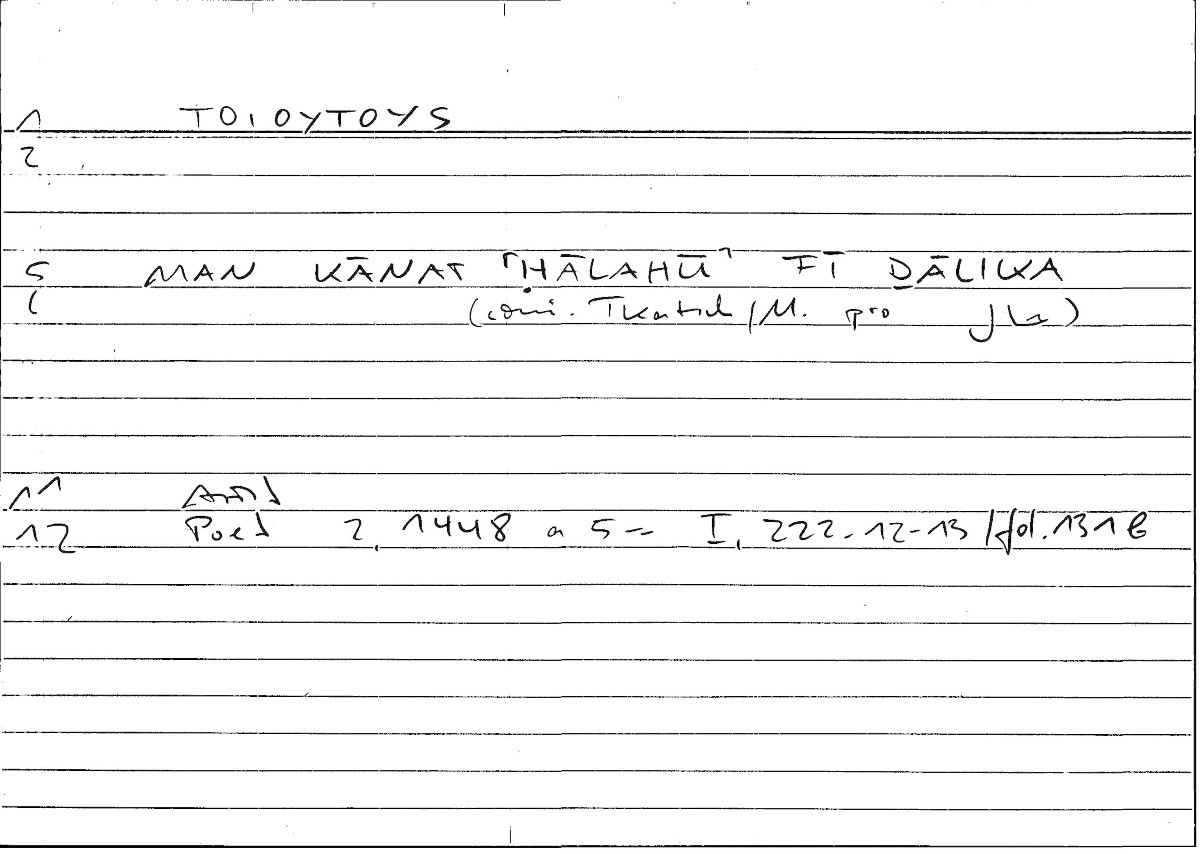 1 TOIOYTOYS
2
5 MAN KĀNAT ⌜ḤĀLAHŪ⌝ FĪ ḎĀLIKA
( (coni. Tkatsch/M. pro حال)
11 Arist
12 Poet 2, 1448 a 5 = I, 222.12-13/fol.131b